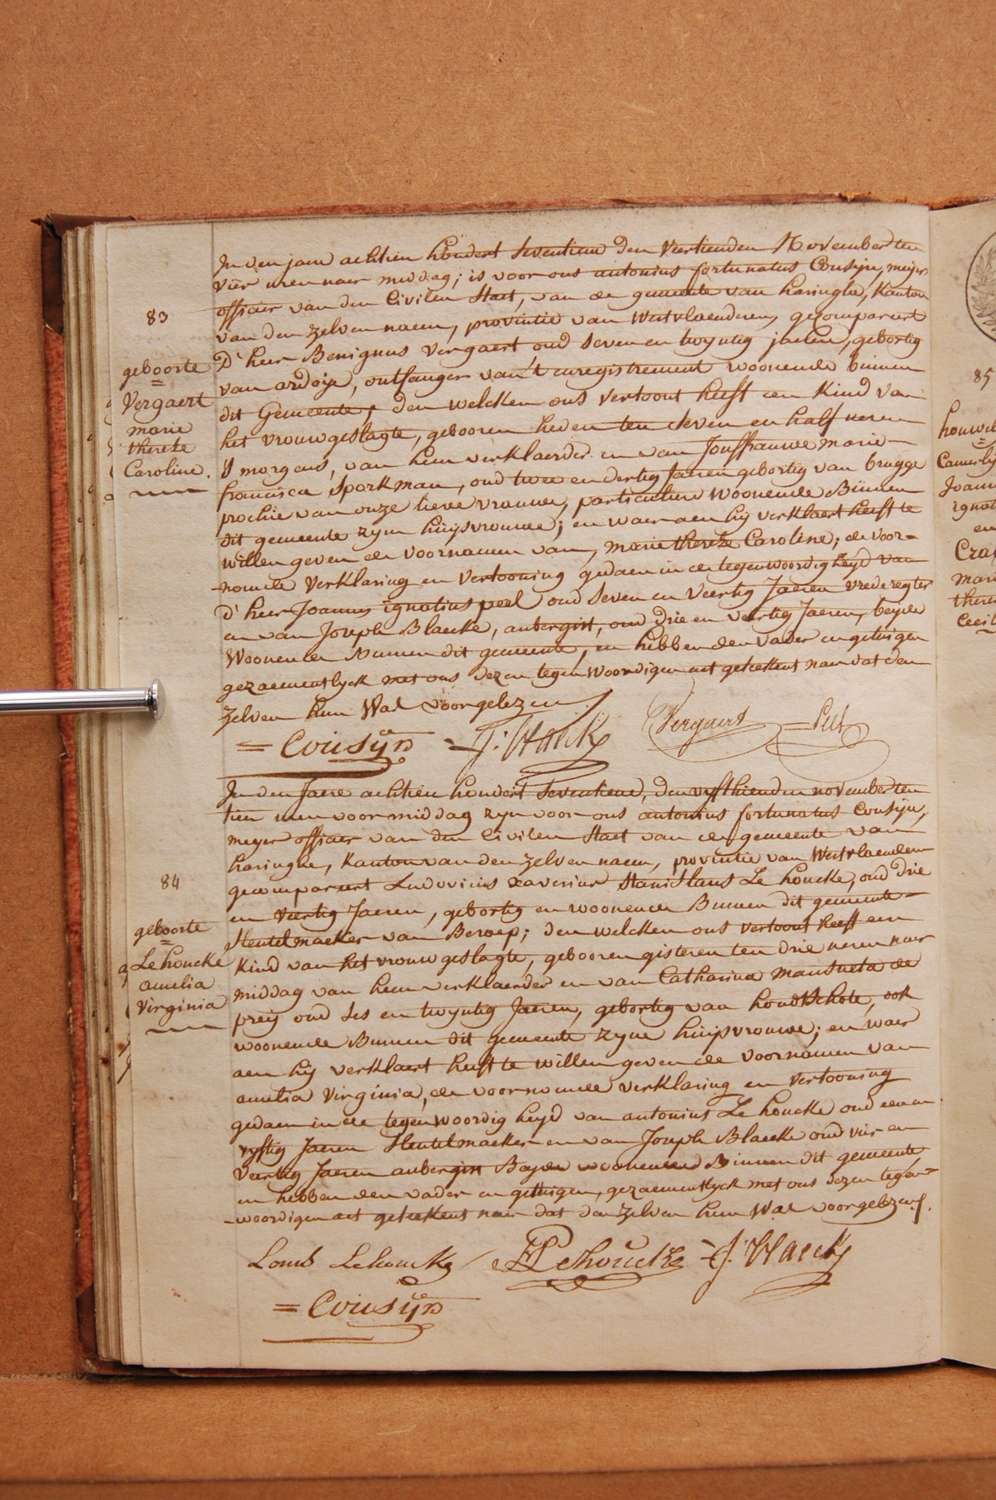 83
geboorte
Vergaert
marie
thereze
Caroline.
In den jare achtien hondert seventiene den veertienden November ten
vier uren naer middag; is voor ons antonius fortunatus Cousijn, meijer
officier van den Civilen Staet, van de gemeente van haringhe, Kanton
van den zelven naem, provintie van Westvlaenderen, gecompareert
D'heer Benignus Vergaert oud seven en twyntig jaeren, gebortig
van ardoije, ontfanger van't enregistrement woonende binnen
dit Gemeente, den welcken ons vertoont heeft een Kind van
het vrouwgeslagte, gebooren heden ten seven en half uren
'S morgens, van hem verklaerder en van Jouffrauwe marie
francisca Sporkman, oud twee en dertig Jaeren gebortig van brugge
prochie van onze lieve vrouwe, particuliere woonende Binnen
dit gemeente zijne huijsvrouwe; en waer aen hij verklaert heeft te
willen geven de voornamen van, marie thereze Caroline; de voor-
nomde verklaring en vertooning gedaen in de tegenwoordigheyd van
D'heer Joannes ignatius peel oud seven en veertig Jaeren vrederegter
en van Joseph Blaecke, aubergist, oud drie en veertig Jaeren, beyde
Woonende Binnen dit gemeente, en hebben den vader en getuigen
gezaementlyck met ons dezen tegenwoordigen act getekent naer dat den
zelven hun Wal voorgelezen.
= Cousijn J: Blaecke Vergaert = Peel
84
geboorte
Le houcke
amelia
Virginia
In den Jaere achtien hondert seventiene, den vyfthienden november ten
tien uren voormiddag zyn voor ons antonius fortunatus Cousijn,
meyer officier van den Civilen Staet van de gemeente van
haringhe, Kanton van den zelven naem, provintie van Westvlaenderen
gecompareert Ludovicus xaverius Stanislaus Le houcke, oud drie
en veertig Jaeren, gebortig en woonende Binnen dit gemeente
Sleutelmaeker van Beroep; den welcken ons vertoont heeft een
Kind van het vrouwgeslagte, gebooren gisteren ten drie uren naer
middag van hem verklaerder en van Catharina mansueta de
preij oud ses en twyntig Jaeren, gebortig van hondschote, ook
woonende Binnen dit gemeente zyne huijsvrouwe; en waer
aen hij verklaert heeft te willen geven de voornamen van
amelia Virginia, de voornomde verklaring en vertooning
gedaen in de tegenwoordigheyd van antonius Le houcke oud een en
vyftig Jaeren Sleutelmaeker en van Joseph Blaecke oud vier en
veertig Jaeren aubergist Beyde woonende Binnen dit gemeente,
en hebben den vader en getuigen, gezaementlyck met ons dezen tegen-
woordigen act getekent naer dat den zelven hun Wal voorgelezen.
Louis Lehoucke Lehoucke J. Blaecke
= Cousijn
85
Joann
ignat
en
Mari
there
Cecil